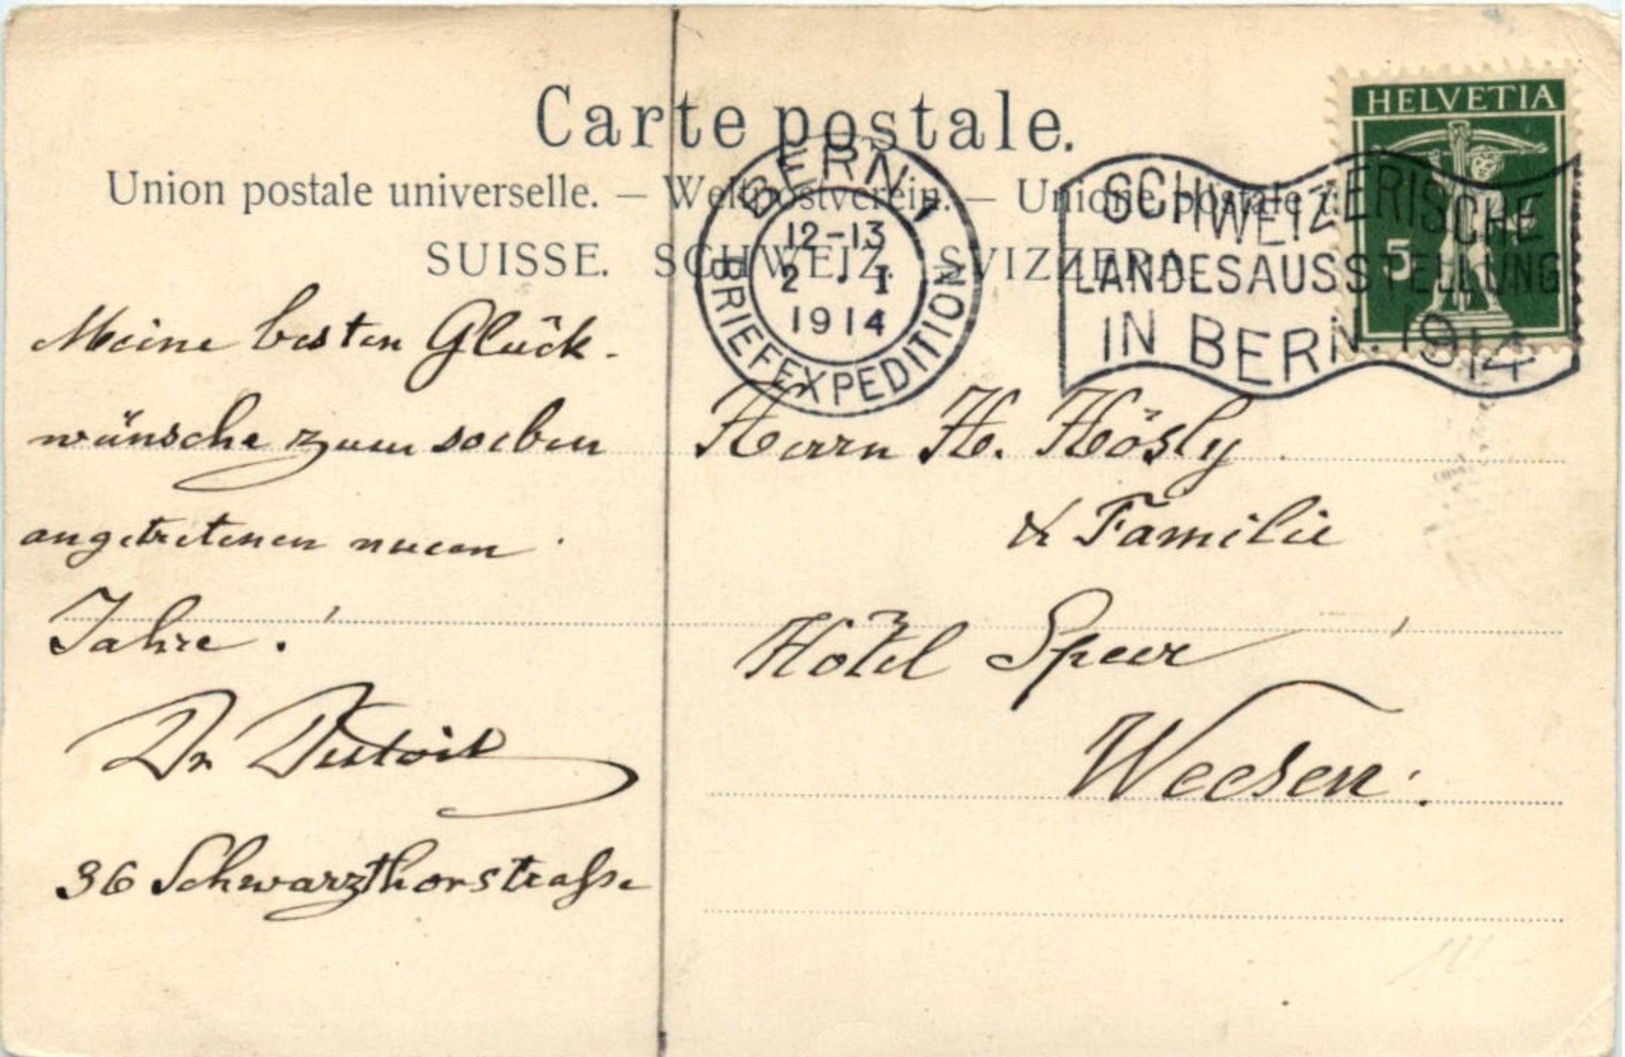 Carte postale.
Union postale universelle. — Weltpostverein. — Unione postale
SUISSE. SCHWEIZ. SVIZZERA.
HELVETIA
5
BERN 1
12-13
2. I
1914
BRIEFEXPEDITION
SCHWEIZERISCHE
LANDESAUSSTELLUNG
IN BERN. 1914
Meine besten Glück-
wünsche zum soeben
angetretenen neuen
Jahre!
Dr
36 Schwarzthorstraße
Herrn H. Hösly
& Familie
Hôtel Speer
Weesen.